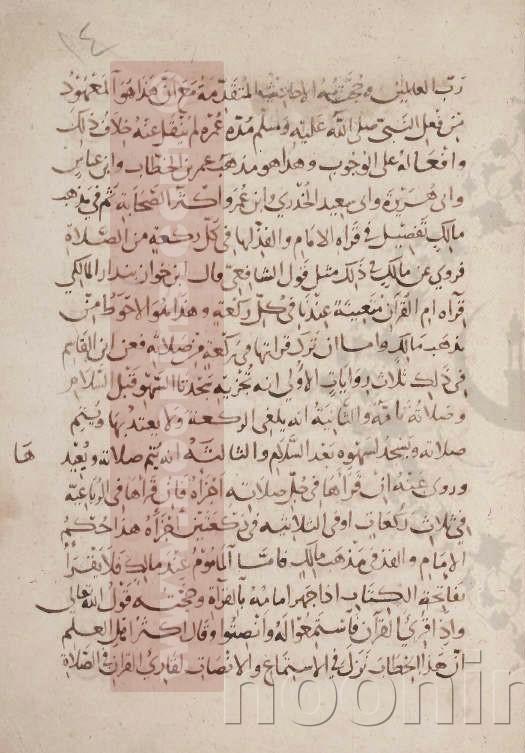 ٤
رب العالمين وحجته الاحاديث المتقدمة مع ان هذا هو المعهود
من فعل النبي صلى الله عليه وسلم مدة عمره لم ينقل عنه خلاف ذلك
وافعاله على الوجوب وهذا هو مذهب عمر بن الخطاب وابن عباس
وابي هريرة وابي سعيد الخدري وابن عمر واكثر الصحابة ثم في مذهب
مالك تفصيل في قراه الامام والفذ لها في كل ركعة من الصلاة
فروي عن مالك في ذلك مثل قول الشافعي وقال ابن خواز بنداد المالكي
قراه ام القرآن متعينة عندنا في كل ركعة وهذا هو الاحوط من
مذهب مالك واما ان ترك قراتها في ركعة من صلاته فعن ابن القاسم
في ذلك ثلاث روايات الاولى انه تجزيه سجدتا السهو قبل السلام
وصلاته تامة والثانية انه يلغى الركعة ولا يعتد بها ويتم
صلاته ويسجد لسهوه بعد السلام والثالثة انه يتم صلاته ويعيد
ها
وروي عنه ان قراها في جل صلاته اجزاه فان قراها في الرباعية
في ثلاث ركعات او في الثلاثية في ركعتين تجزاه هذا حكم
الامام والفذ في مذهب مالك فاما الماموم عند مالك فلا يقرا
بفاتحة الكتاب اذا جهر امامه بالقراة وحجته قول الله تعالى
واذا قرئ القرآن فاستمعوا له وانصتوا وقال اكثر اهل العلم
ان هذا الخطاب نزل في الاستماع والانصات لقارئ القرآن في الصلاة
noonin